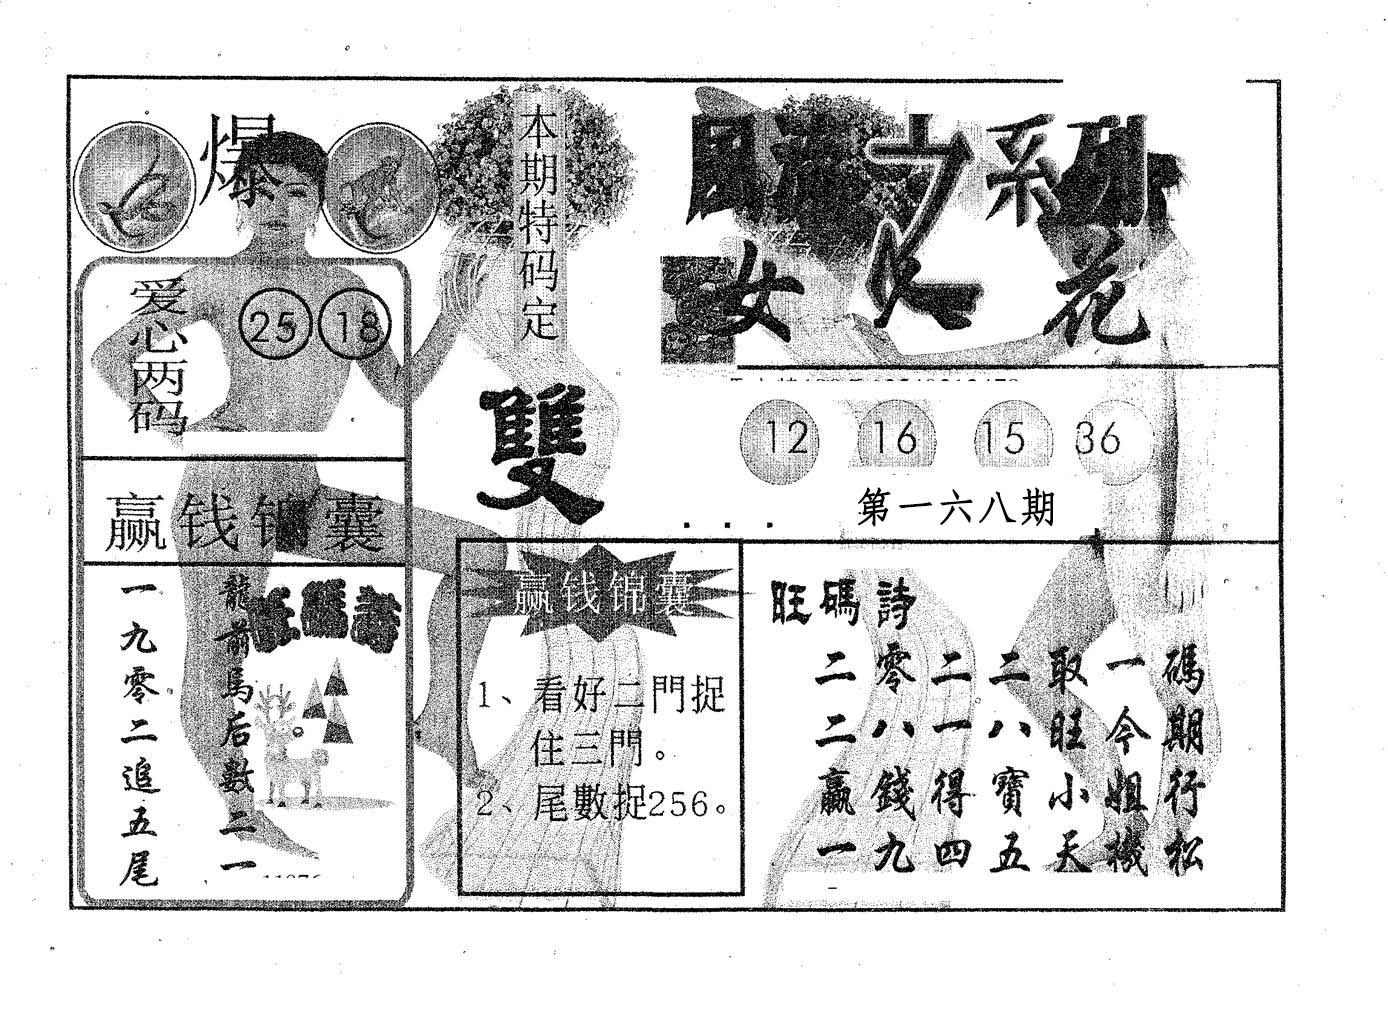 爆
爱心两码
25 18
赢钱锦囊
龍前馬后數二一
一九零二追五尾
旺碼詩
本期特码定
雙
赢钱锦囊
1、看好二門捉
住三門。
2、尾數捉256。
風流之系列
女人花
12 16 15 36
第一六八期
旺碼詩
二零二二取一碼
二八一八旺今期
贏錢得寶小姐行
一九四五天機松